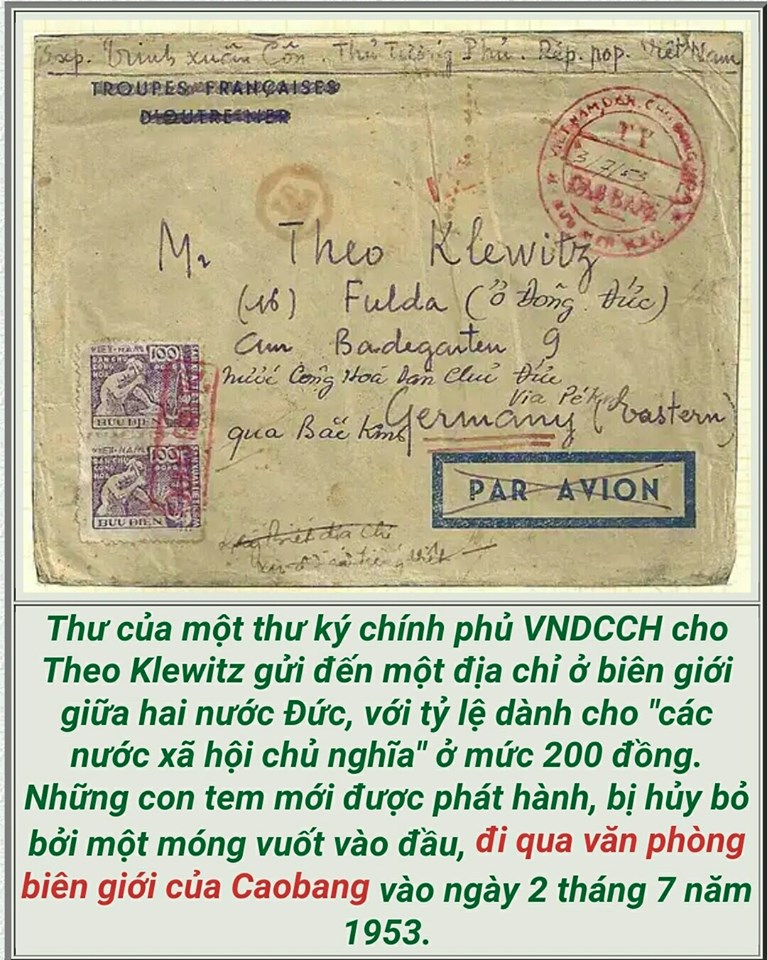 Exp. Trinh Xuân Côn. Thủ Tướng Phủ. Rép. pop. Việt Nam
TROUPES FRANÇAISES
D'OUTRE-MER
VIET NAM DAN CHU CONG HOA
TP
3/7/53
CAO BANG
Mr Theo Klewitz
(16) Fulda (ở Đông Đức)
Am Badegarten 9
nước Cộng Hoá Dan Chủ Đức
Via Pékin
qua Bắc Kinh Germany (Eastern)
VIET-NAM 100
DAN CHU
CONG
HOA
BUU ĐIEN
VIET-NAM 100
DAN CHU
CONG
HOA
BUU ĐIEN
PAR AVION
Thư của một thư ký chính phủ VNDCCH cho
Theo Klewitz gửi đến một địa chỉ ở biên giới
giữa hai nước Đức, với tỷ lệ dành cho "các
nước xã hội chủ nghĩa" ở mức 200 đồng.
Những con tem mới được phát hành, bị hủy bỏ
bởi một móng vuốt vào đầu, đi qua văn phòng
biên giới của Caobang vào ngày 2 tháng 7 năm
1953.